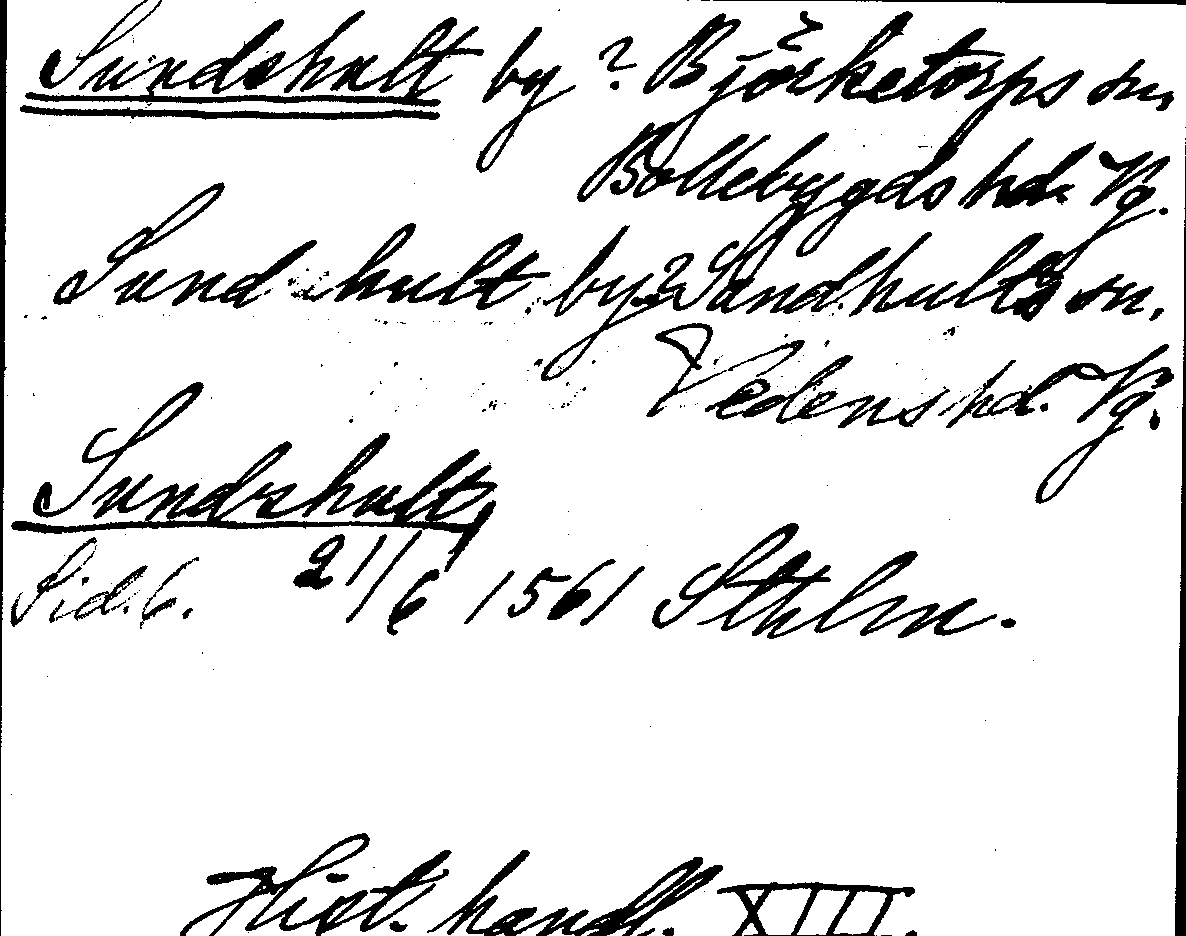 Sundshult by? Björketorps sn,
Bollebygds hd. Vg.
Sundshult by? Sandhults sn.
Vedens hd. Vg.
Sundshult,
Sid. 6. 21/6 1561 Sthlm.
Hist. handl. XIII.